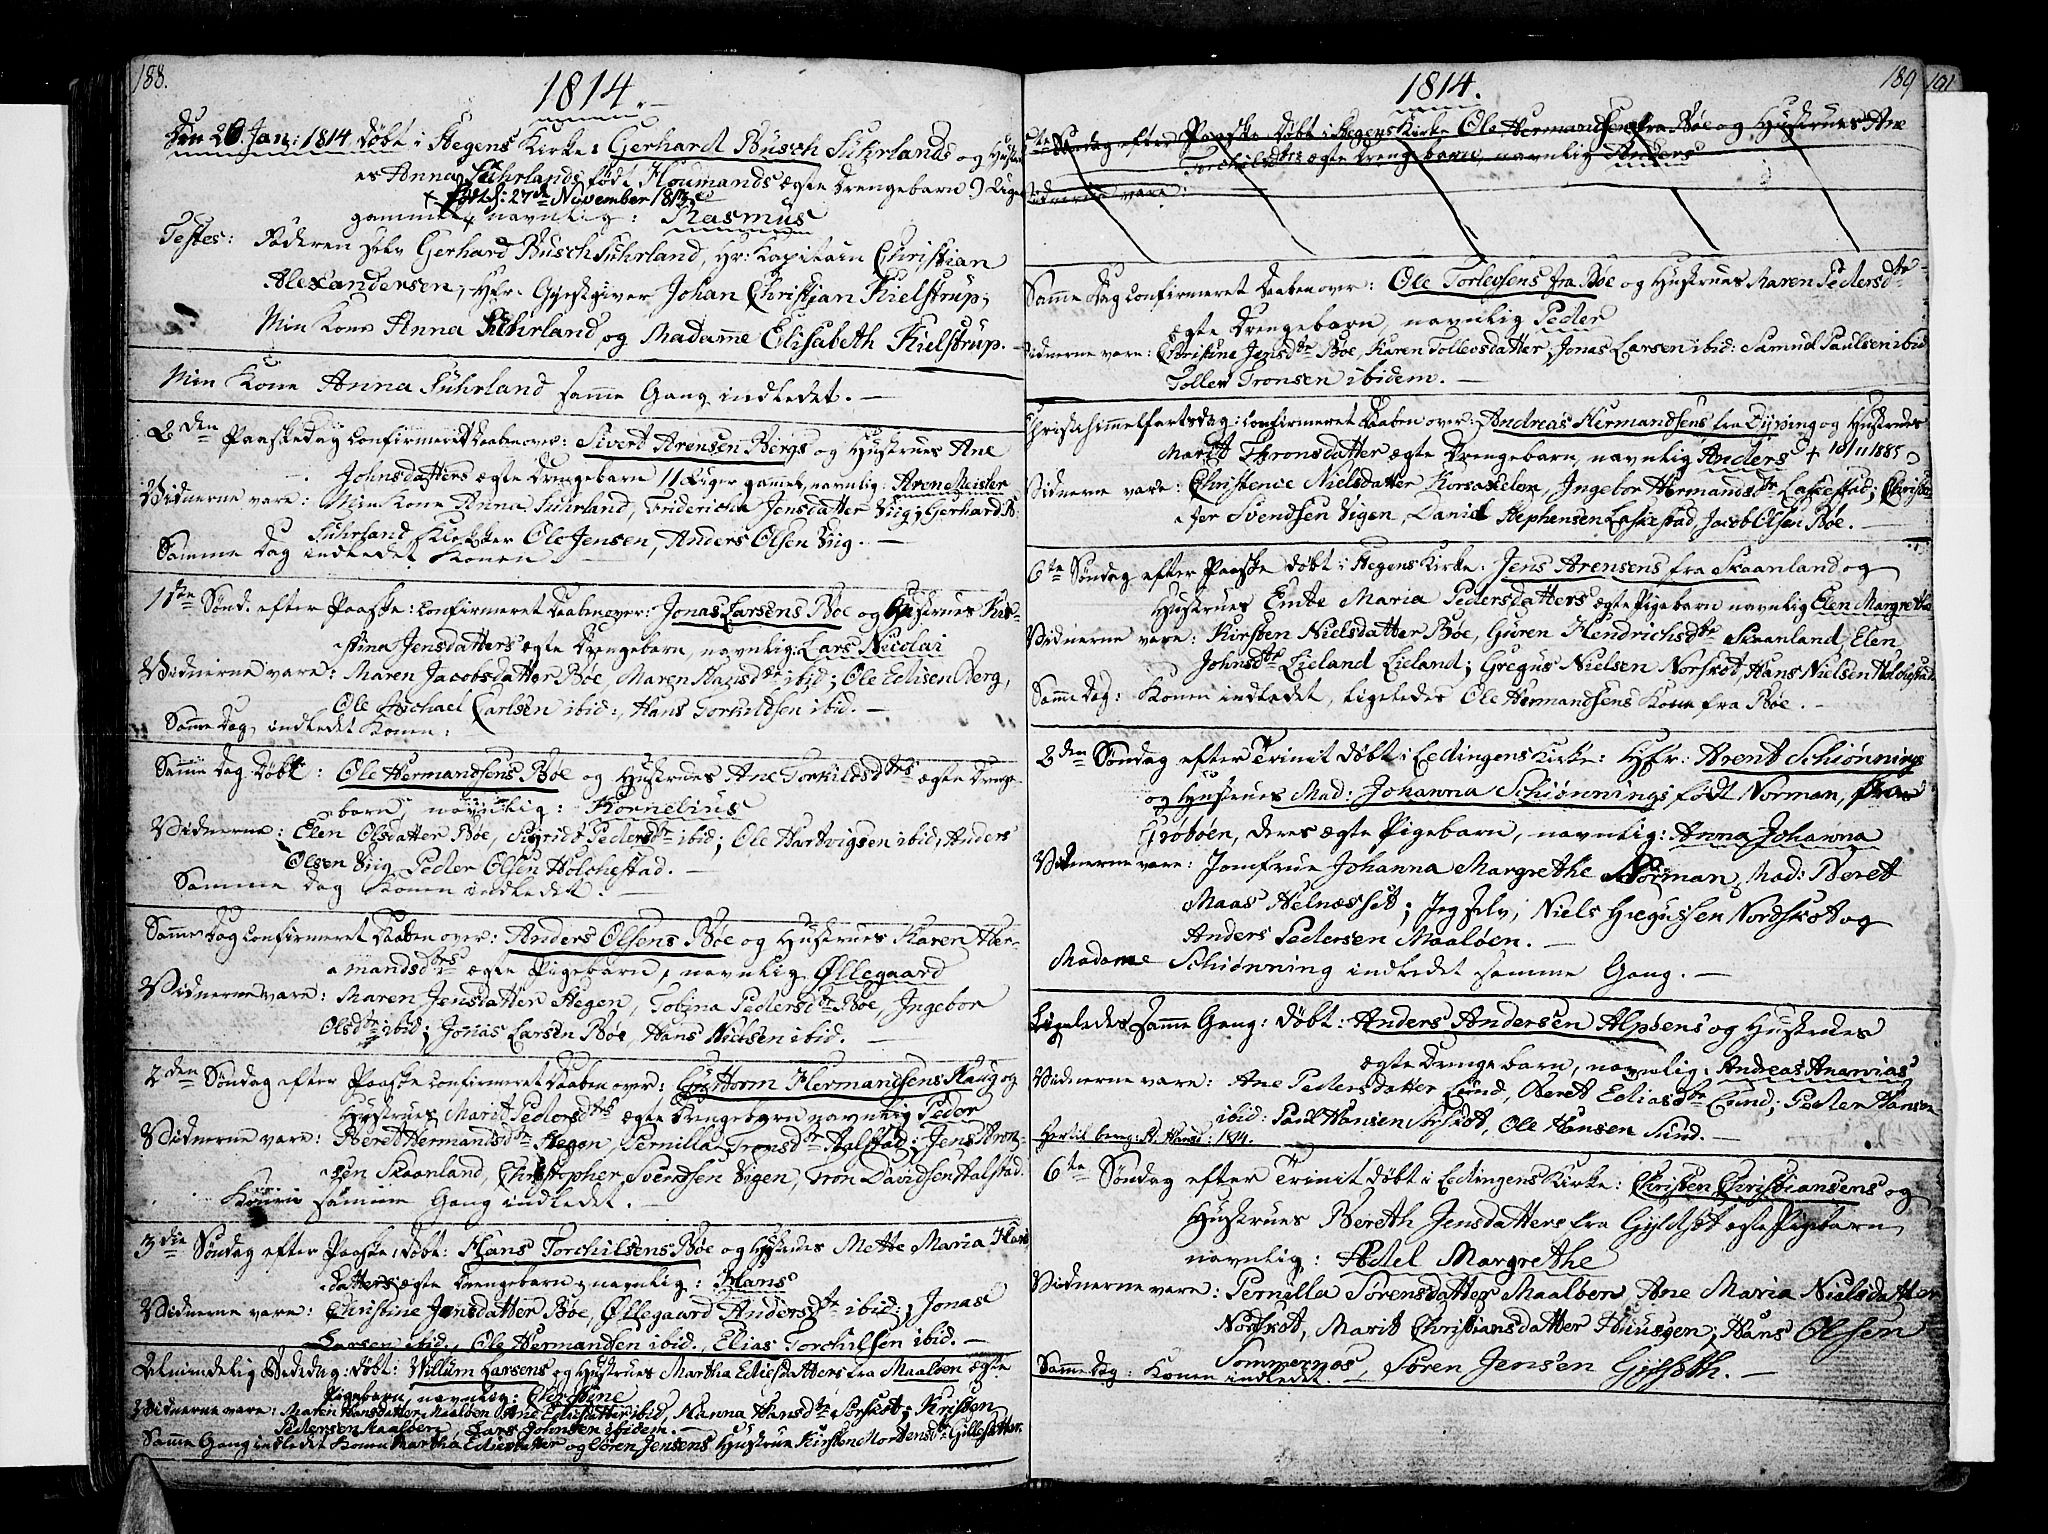 188.
1814.
Den 26 Jan: 1814 døbt i Hegens Kirke: Gerhard Busch Suhrlands og Hustru-
es Anna Suhrlands født Houmands ægte Drengebarn 9 Uger
+ født d: 27de November 1813
gammel + navnlig: Rasmus
Testes: Faderen selv Gerhard Busch Suhrland, Hr: Kapitain Christian
Alexandersen, Hfr. Gjestgiver Johan Christian Kielstrup;
Min Kone Anna Suhrland og Madame Elisabeth Kielstrup.
Min Kone Anna Suhrland samme Gang indledet. —
2den Paaskedag confirmeret Daaben over: Sivert Arensen Bergs og Hustrues Ane
Johnsdatters ægte Drengebarn 11 Uger gamel, navnlig: Arone Meister
Vidnerne vare: Min Kone Anna Suhrland, Fridericha Jensdatter Viig; Gerhard B:
Suhrland, Klokker Ole Jensen, Anders Olsen Viig. —
Samme Dag indledet Konen.
1ste Sønd. efter Paaske: confirmeret Daaben over: Jonas Larsens Bøe og Hustrues Kir-
stina Jensdatters ægte Drengebarn, navnlig: Lars Nicolai
Vidnerne vare: Maren Jacobsdatter Bøe, Maren Hansdtr ibid; Ole Edisen Berg,
Ole Michael Carlsen ibid:, Hans Torkildsen ibid. —
Samme Dag indledet Konen:
Samme Dag Døbt: Ole Hermandsens Bøe og Hustrues Ane Torkildsdtrs ægte Drenge-
barn navnlig: Kornebius
Vidnerne: Elen Olsdatter Bøe, Sigrid Pedersdtr ibid; Ole Hartvigsen ibid, Anders
Olsen Viig Peder Olsen Holchestad. —
Samme Dag Konen indledet. —
Samme Dag confirmeret Daaben over: Anders Olsens Bøe og Hustrues Karen Her-
mandsdtrs ægte Pigebarn, navnlig Øllegaard
Vidnerne vare: Maren Jensdatter Hegen, Tobina Pedersdtr Bøe, Ingebor
Olsdtr ibid; Jonas Larsen Bøe, Hans Nielsen ibid. —
2den Søndag efter Paaske confirmeret Daaben over: Guttorm Hermandsens Haug og
Hustrues Marit Pedersdtrs ægte Drengebarn navnlig Peder
Vidnerne vare: Beret Hermandsdtr Hegen, Pernilla Tronsdtr Halstad; Jens Aron-
sen Skaanland, Christopher Svendsen Vigen, Tron Davidsen Halstad.
Konen samme Gang indledet. —
3die Søndag efter Paaske, døbt: Hans Torchilsens Bøe og Hustrues Mette Maria Hans
datters ægte Drengebarn, navnlig: Hans
Vidnerne vare: Christine Jensdatter Bøe, Øllegaard Andersdtr ibid:; Jonas
Larsen ibid., Ole Hermandsen ibid., Elias Torchilsen ibid. —
Almindelig Bededag: døbt: Willum Larsens og Hustrues Martha Edisdatters fra Maaløen ægte
Pigebarn, navnlig: Christine
Vidnerne vare: Maren Hansdatter Maaløen Ane Edisdatter ibid, Hanna Hansdtr Sørskot; Kristen
Pedersen Maaløen, Lars Johnsen ibidem. —
Samme Gang indledet Konen Martha Edisdatter og Søren Jensens Hustrue Kirsten Mortensdtr Gillesotter.
189
191
1814.
5te Søndag efter Paaske døbt i Hegens Kirke Ole Hermandsens fra Bøe og Hustrues Ane
Torchilsdtrs ægte Drengebarn, navnlig Anders
Vidnerne vare:
Samme Dag confirmeret Daaben over: Ole Torlevsens fra Bøe og Hustrues Maren Pedersdtr-
ægte Drengebarn, navnlig Peder
Vidnerne vare: Christine Jensdtr Bøe, Karen Tollevsdatter, Jonas Larsen ibid: Samuel Paulsen ibid
Tollev Tronsen ibidem. —
Christi Himmelfartsdag: confirmeret Daaben over: Andreas Hermandsens fra Dyping og Hustrues
Marit Thronsdatter ægte Drengebarn, navnlig Anders + 10/11 1885
Vidnerne vare: Christence Nielsdatter Korsaxelen, Ingebor Hermandsdtr Laskestad; Christo-
fer Svendsen Vigen, Daniel Stephensen Laskestad, Jacob Olsen Bøe. —
6te Søndag efter Paaske døbt i Hegens Kirke: Jens Arensens fra Skaanland og
Hustrues Embe Maria Pedersdatters ægte Pigebarn navnlig Elen Margrethe
Vidnerne vare: Kirsten Nielsdatter Bøe, Guren Hendrichsdtr Skaanland, Elen
Johnsdtr Lieland Lieland; Gregus Nielsen Norskot, Hans Nielsen Holchestad
Samme Dag: Konen indledet, ligeledes Ole Hermandsens Kone fra Bøe. —
2den Søndag efter Trinit døbt i Ledingens Kirke: Hfr: Arent Schiønnings
og Hustrues Mad: Johanna Schiønnings født Norman, fra
Grøbøen, deres ægte Pigebarn, navnlig: Anna Johanna
Vidnerne vare: Jomfrue Johanna Margrethe Norman, Mad: Beret
Maas Helnæsset; Jeg selv, Niels Gregussen Nordskot og
Anders Pedersen Maaløen. —
Madame Schiønning indledet samme Gang. —
Ligeledes samme Gang: døbt: Anders Andersen Alpøens og Hustrues
ægte Drengebarn, navnlig: Andreas Anarvias
Vidnerne vare: Ane Pedersdatter Lund, Beret Ediasdtr Lund; Peder Hansen
ibid: Paul Hansen Sørskot, Ole Hansen Sund. —
Hertil beng: R. Hansd: 1814.
6te Søndag efter Trinit døbt i Ledingens Kirke: Christen Christiansens og
Hustrues Bereth Jensdatters fra Gyldsot ægte Pigebarn
navnlig: Adel Margrethe
Vidnerne vare: Pernilla Sørensdatter Maaløen, Ane Maria Nielsdatter
Norskot, Marit Christiansdatter Huusgen; Hans Olsen
Sommernos, Søren Jensen Gylsoth. —
Samme Dag: Konen indledet —